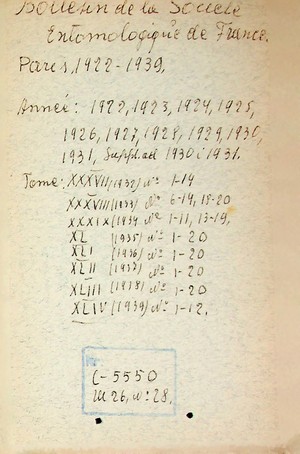 Bolletin de la Société
Entomologique de France.
Paris, 1922-1939,
Année: 1922, 1923, 1924, 1925,
1926, 1927, 1928, 1929, 1930,
1931, Suppl. ad 1930 i 1931.
Tome: XXXVII (1932) Nº 1-14
XXXVIII (1933) Nº 6-14, 18-20
XXXIX (1934 Nº 1-11, 13-19,
XL (1935) Nº 1-20
XLI (1936) Nº 1-20
XLII (1937) Nº 1-20
XLIII (1938) Nº 1-20
XLIV (1939) Nº 1-12.
C-5550
26, Nº 28.